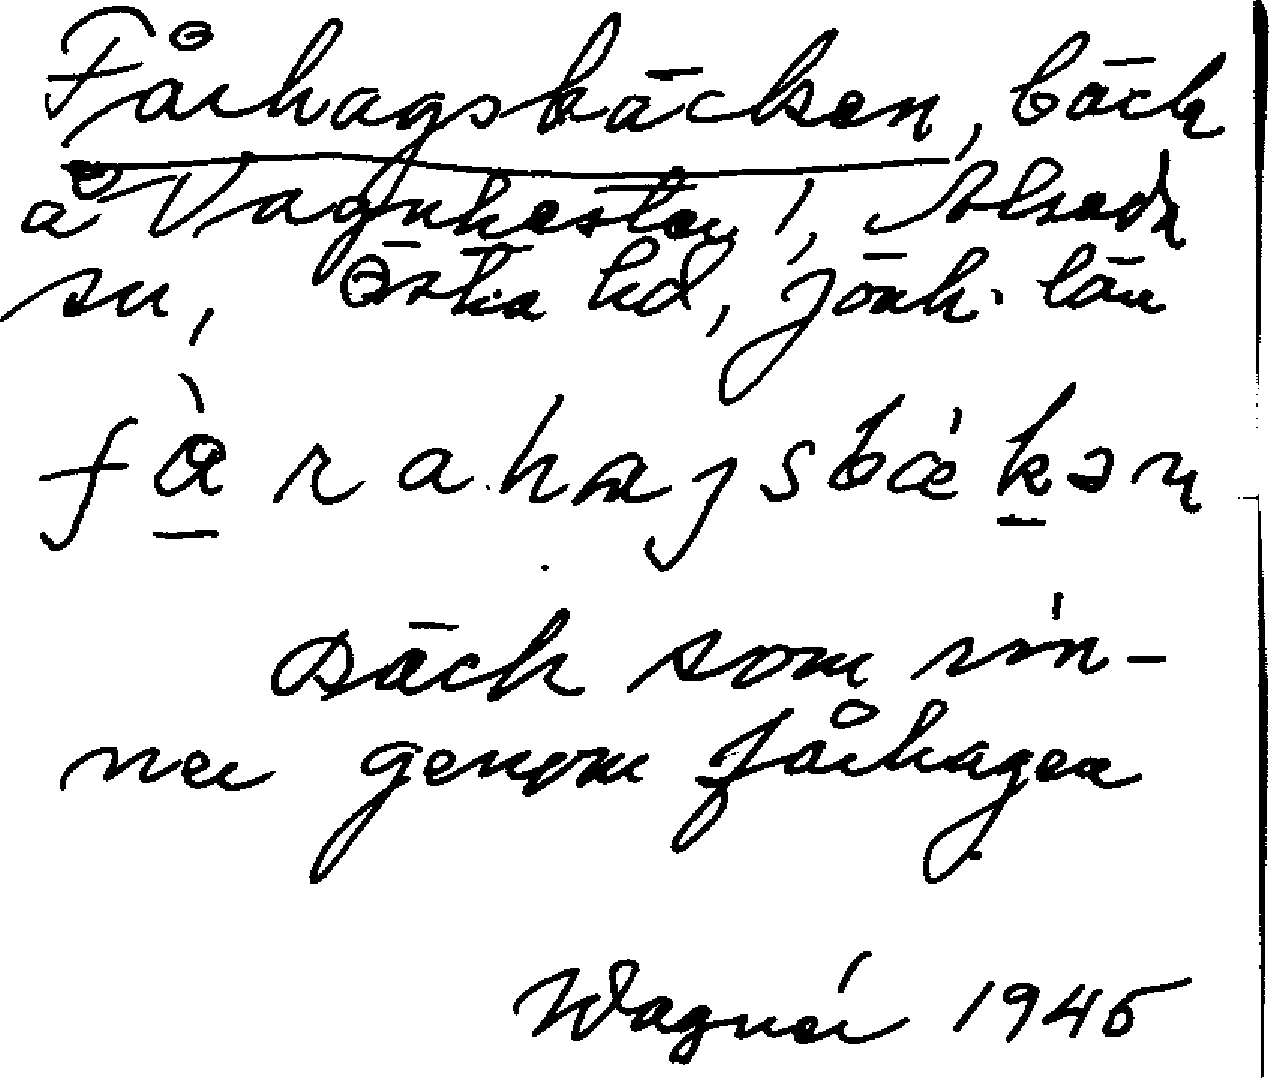 Fårhagsbäcken, bäck
å Vagnhester 1, Alseda
sn, Östra hd, Jönk. län
fàrahagsbǽkən
Bäck som rin-
ner genom fårhagen
Wagnér 1945